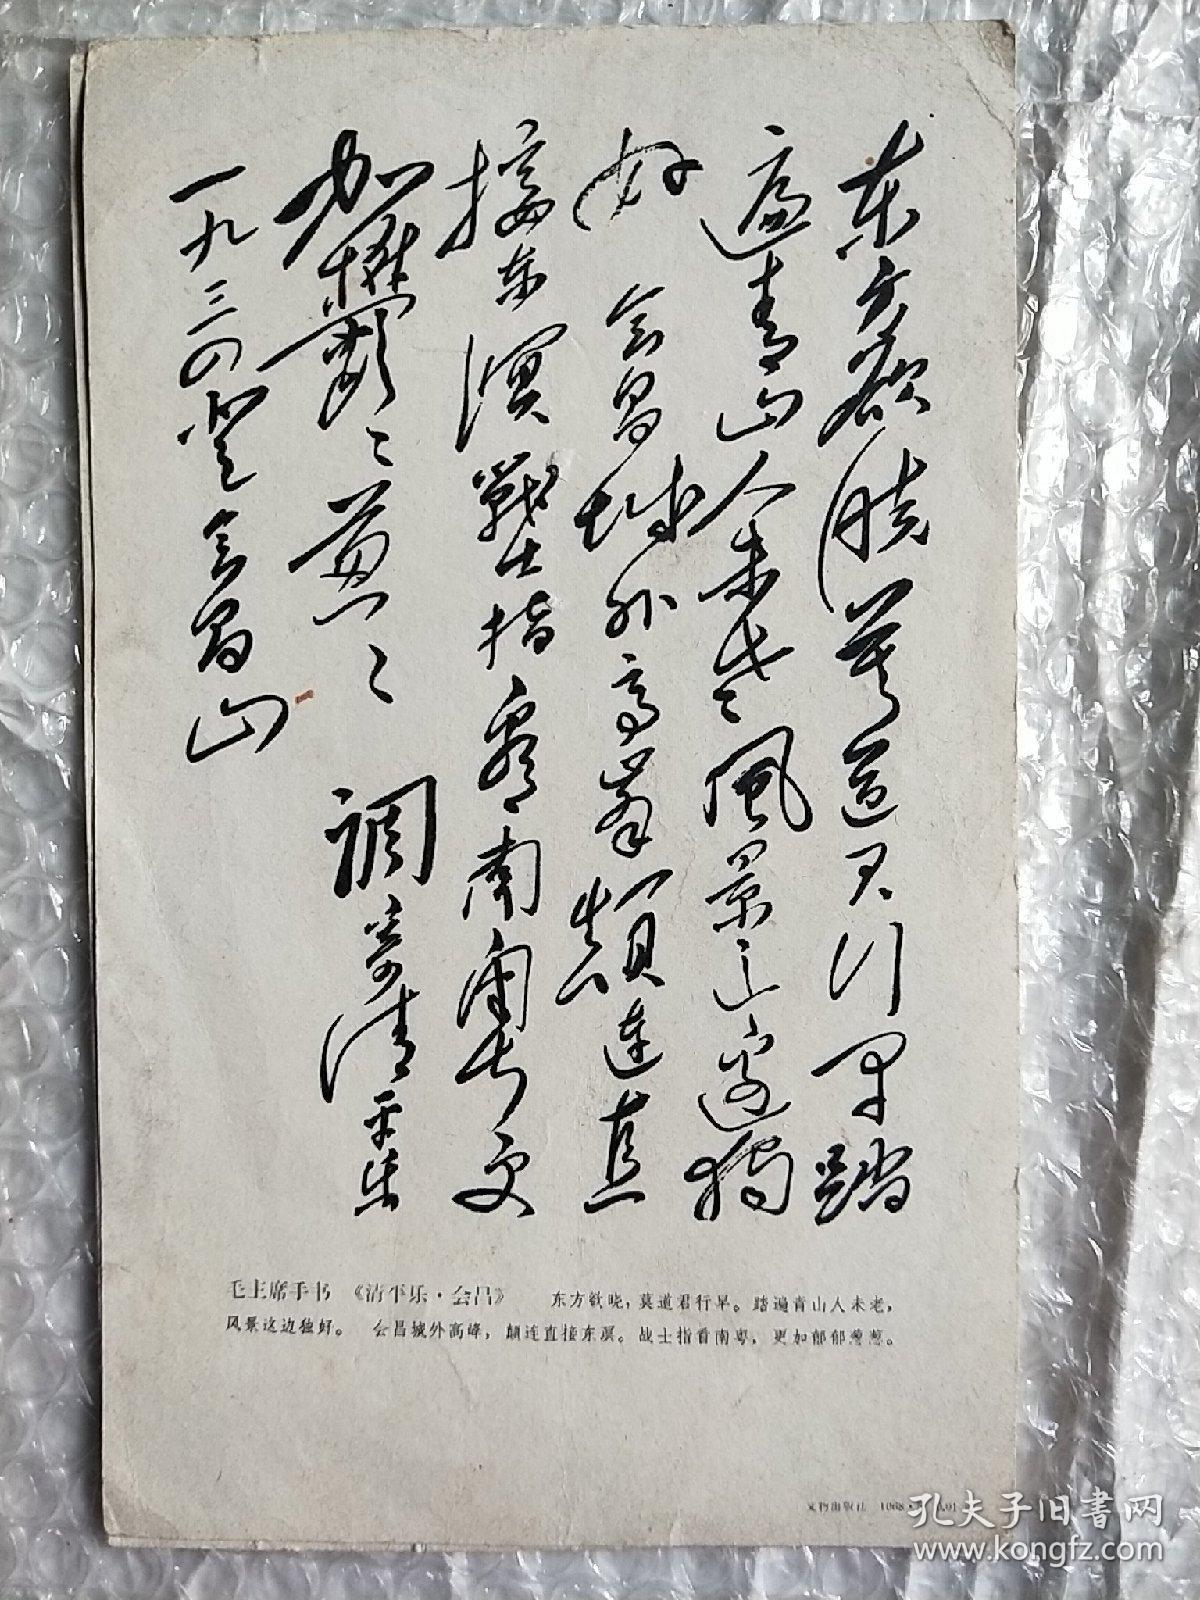 东方欲晓莫道君行早踏
遍青山人未老風景这边独
好 会昌城外高峯颠连直
接东溟戰士指看南粤更
加鬱〻葱〻 調寄清平乐
一九三四登会昌山
毛主席手书 《清平乐·会昌》 东方欲晓,莫道君行早。踏遍青山人未老,
风景这边独好。 会昌城外高峰,颠连直接东溟。战士指看南粤,更加郁郁葱葱。
文物出版社 1968
孔夫子旧书网
www.kongfz.com